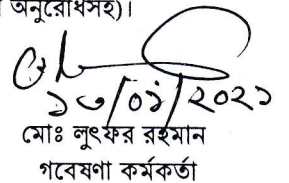 অনুরোধসহ)।
১৩/০১/২০২১
মোঃ লুৎফর রহমান
গবেষণা কর্মকর্তা